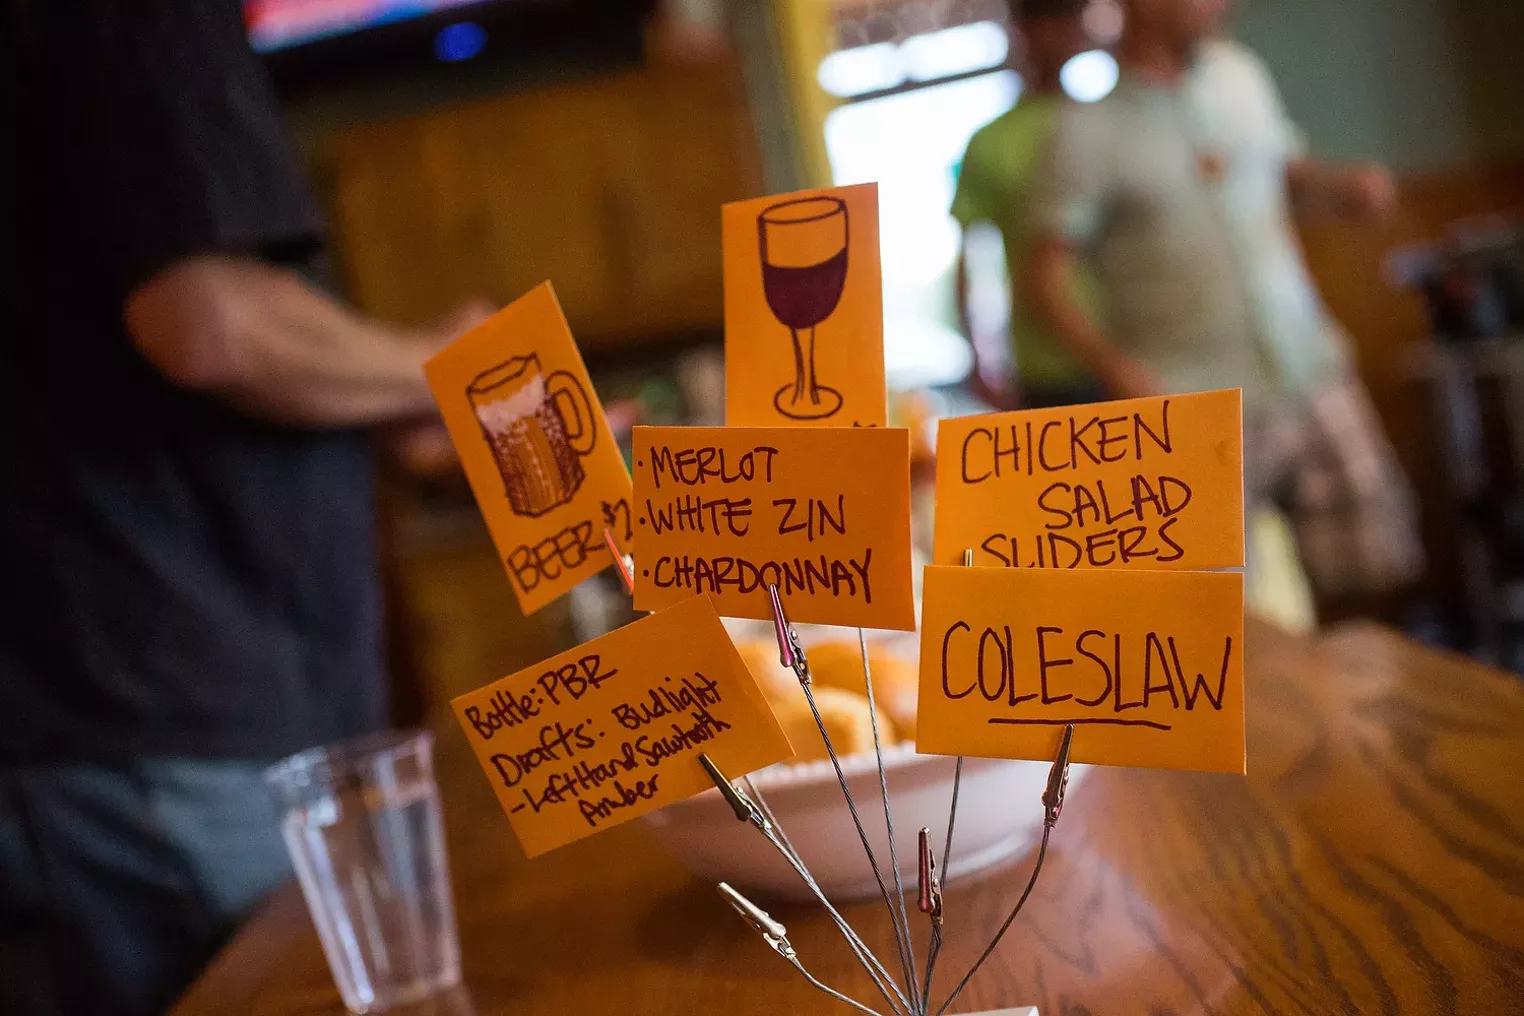 BEER $2
· MERLOT
· WHITE ZIN
· CHARDONNAY
CHICKEN
SALAD
SLIDERS
Bottle: PBR
Drafts: Budlight
- Left Hand Sawtooth
Amber
COLESLAW